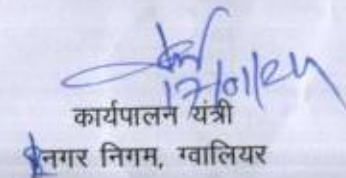 17/01/24
कार्यपालन यंत्री
नगर निगम, ग्वालियर